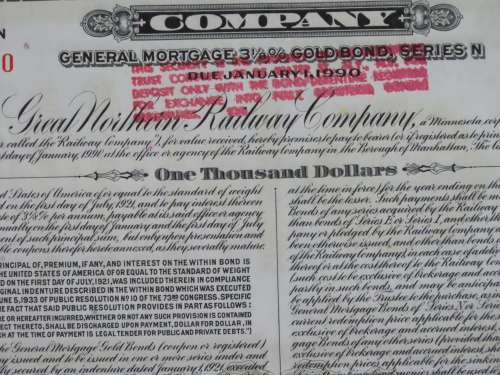 COMPANY
GENERAL MORTGAGE 3⅛% GOLD BOND, SERIES N
N
0
DUE JANUARY 1, 1990.
THIS
TRUST COM
DEPOSIT ONLY WITH THE BONDS
FOR EXCHANGE INTO
Great Northern Railway Company, a Minnesota cor
called the "Railway Company"), for value received, hereby promises to pay to bearer or, if registered, as to prin
day of January, 1990, at the office or agency of the Railway Company in the Borough of Manhattan, The
One Thousand Dollars
d States of America of or equal to the standard of weight
on the first day of July, 1921, and to pay interest thereon
te of 3⅛% per annum, payable at its said office or agency
nually on the first day of January and the first day of July
of such principal sum, but only upon presentation and
coupons therefor hereto annexed, as they severally mature.
PRINCIPAL OF, PREMIUM, IF ANY, AND INTEREST ON THE WITHIN BOND IS
THE UNITED STATES OF AMERICA OF OR EQUAL TO THE STANDARD OF WEIGHT
D ON THE FIRST DAY OF JULY, 1921, WAS INCLUDED THEREIN IN COMPLIANCE
RIGINAL INDENTURE DESCRIBED IN THE WITHIN BOND WHICH WAS EXECUTED
UNE 5, 1933 OF PUBLIC RESOLUTION NO 10 OF THE 73RD CONGRESS. SPECIFIC
THE FACT THAT SAID PUBLIC RESOLUTION PROVIDES IN PART AS FOLLOWS:-
OR HEREAFTER INCURRED, WHETHER OR NOT ANY SUCH PROVISION IS CONTAINED
ECT THERETO, SHALL BE DISCHARGED UPON PAYMENT, DOLLAR FOR DOLLAR, IN
CH AT THE TIME OF PAYMENT IS LEGAL TENDER FOR PUBLIC AND PRIVATE DEBTS."
the General Mortgage Gold Bonds (coupon or registered)
y issued and to be issued in one or more series under and
secured by an indenture dated January 1, 1921, executed
at the time in force) for the year ending on the
shall be the lesser. Such payments shall be m
Bonds of any series acquired by the Railway
than bonds of Series I or Series J, and other
company or pledged by the Railway Company
been otherwise issued, and other than bonds
of the Railway Company), in each case of a da
thereof or at the cost thereof to the Railway C
such cost to be exclusive of brokerage and accr
partly in such bonds, and may be anticipat
be applied by the Trustee to the purchase, as
of General Mortgage Gold Bonds of Series
current redemption price applicable for suc
exclusive of brokerage and accrued interest,
gage Bonds of any other series (provided tha
exclusive of brokerage and accrued interest, sh
redemption price available for the sinking